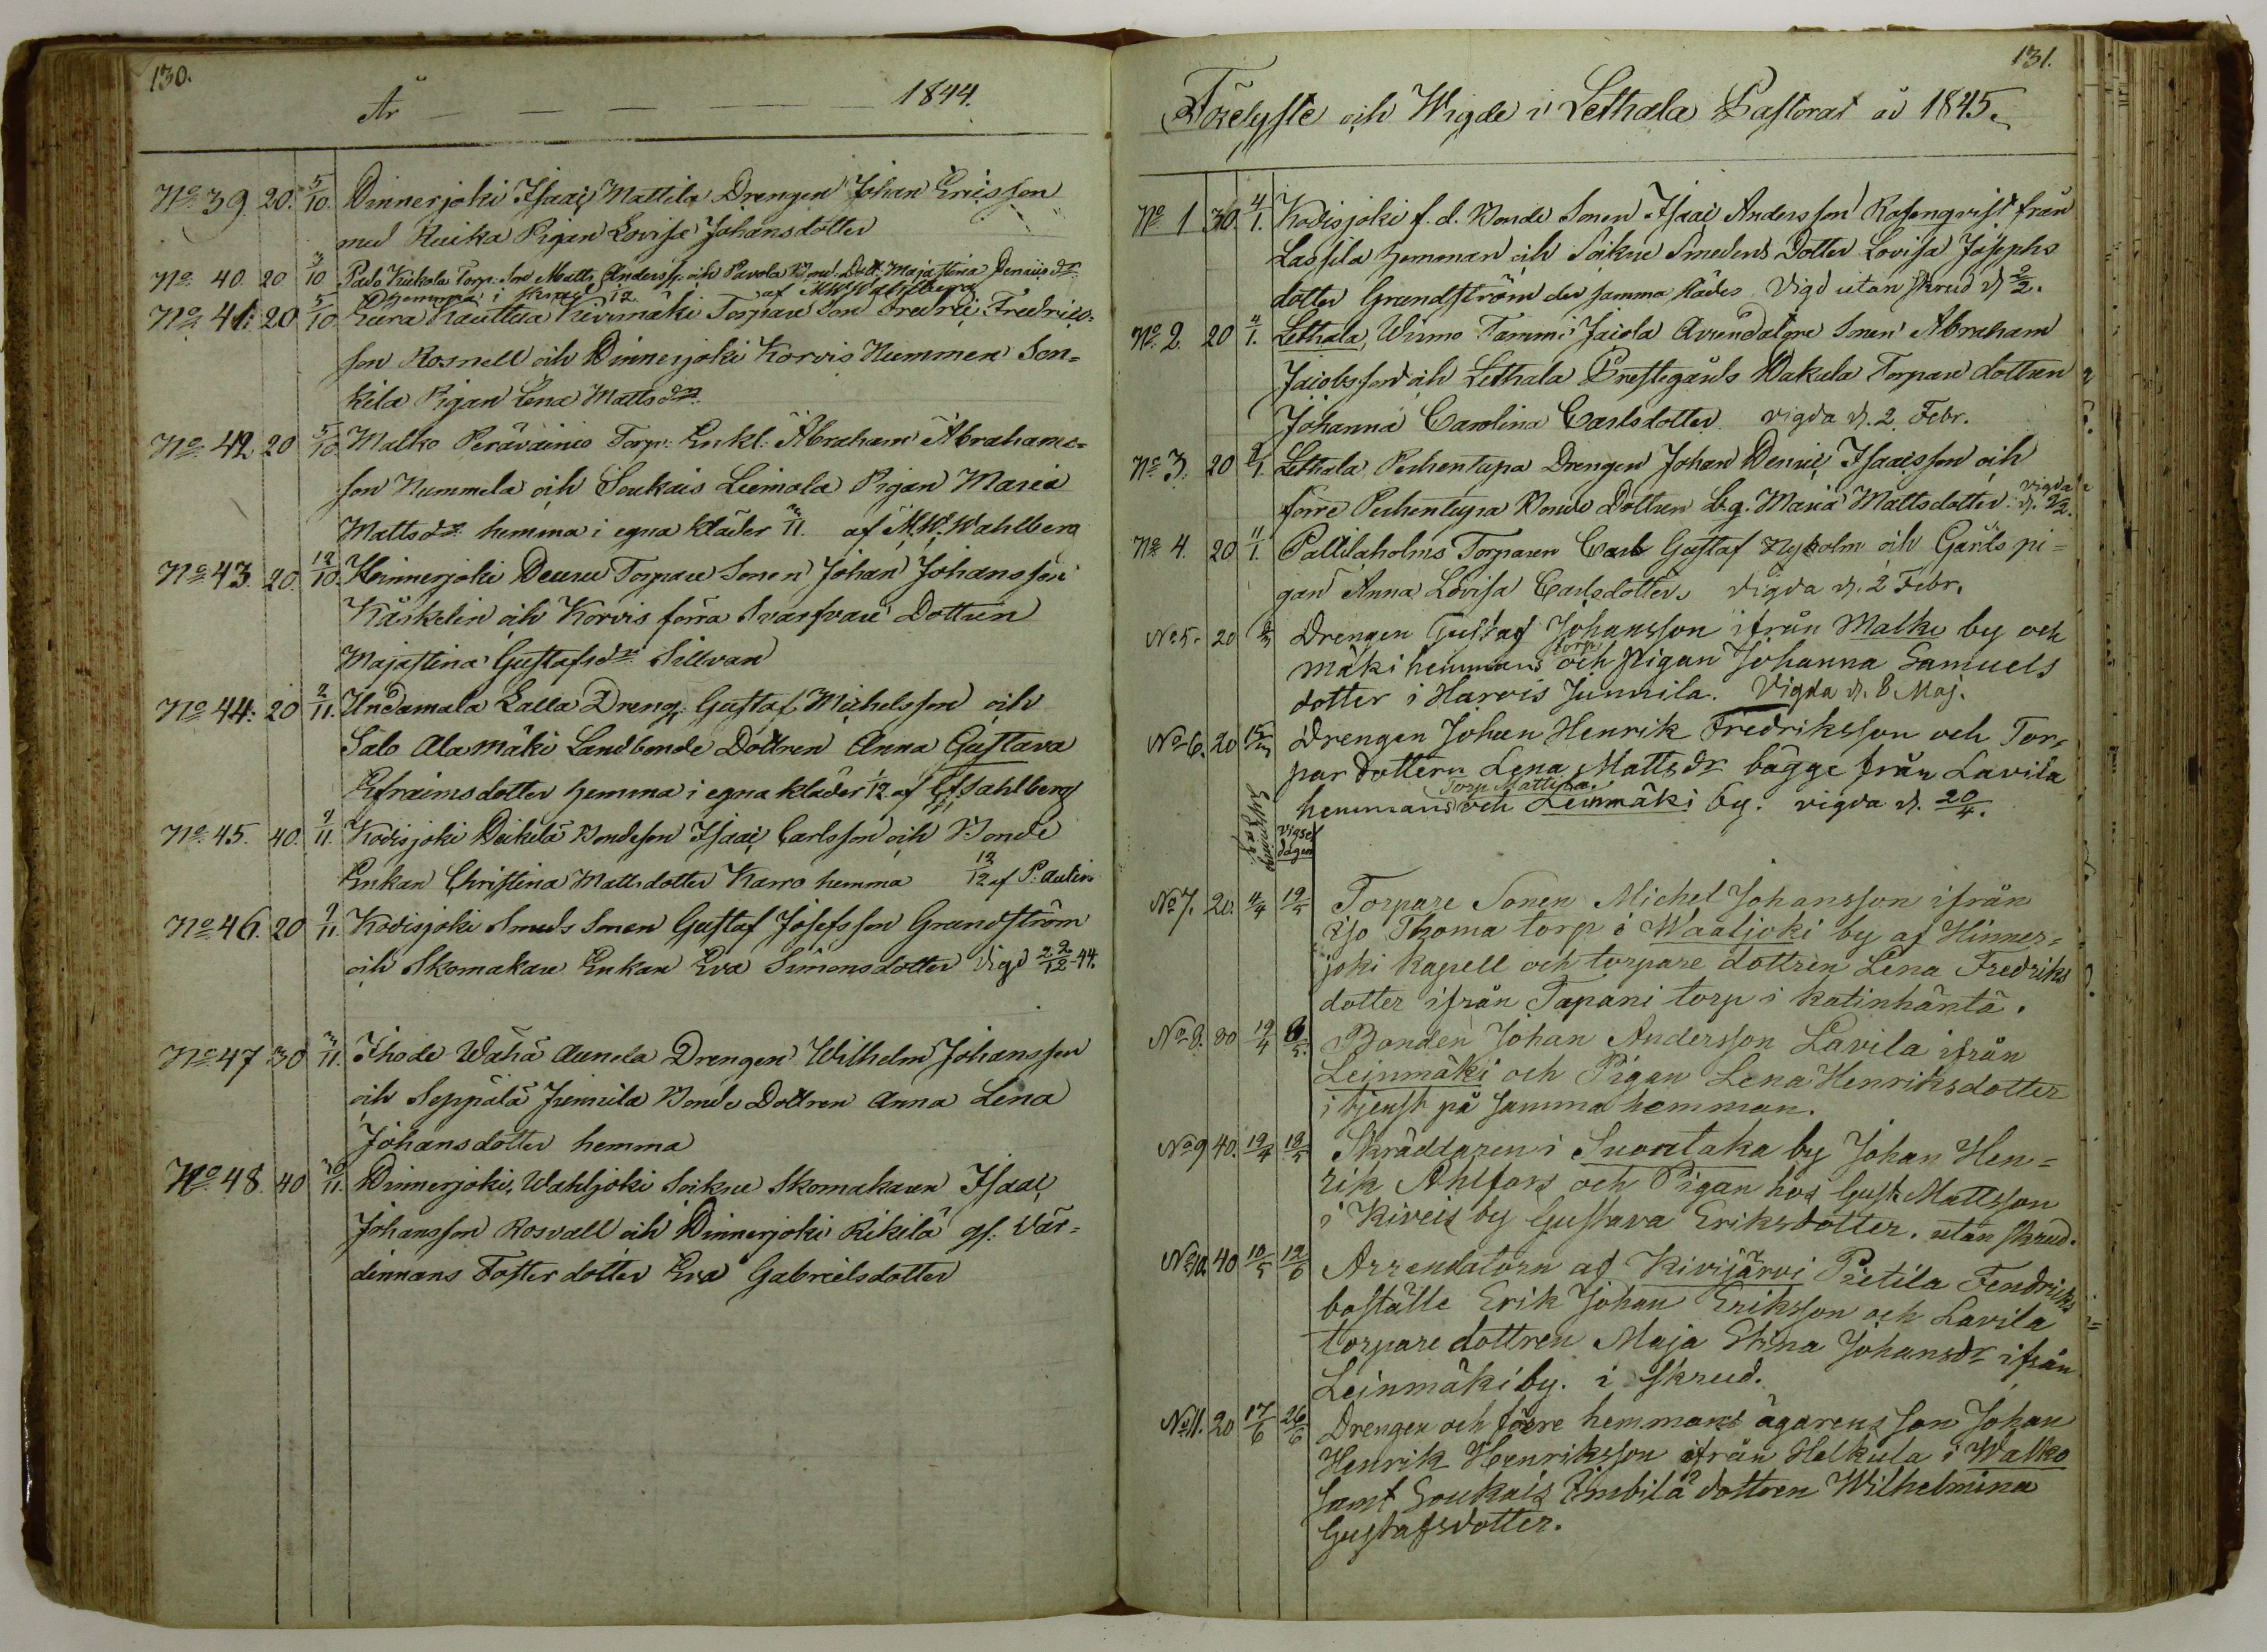 130.
År — — — — 1844.
No 39. 20. 5/10. Hinnerjoki Isaac Mattila Drengen Johan Ericsson
med Pigan Lovisa Johansdotter
No 40. 20 3/10 Torp. Son Matts Anderss. och Bond. Dott. Majastina
hemma i skrud 12 af M.W. Wahlberg
No 41. 20 5/10 Eura Kauttua Kivimäki Torpare Son Fredric Fredrics-
son Rosnell och Hinnerjoki Korvis Nummen Son-
kila Pigan Lena Mattsdr
No 42. 20 5/10 Malko Perävainio Torp. Enkl. Abraham Abrahams-
son Nummela och Soukais Leimola Pigan Maria
Mattsdr hemma i egna kläder 3/11. af M.W. Wahlberg
No 43. 20. 12/10. Hinnerjoki Torpare Sonen Johan Johansson
Käskelin och Korvis förra Svarfvare Dottren
Majastina Gustafsdr Sillvan
No 44. 20 2/11. Undamala Lalla Dreng. Gustaf Michelsson och
Salo Alamäki Landbonde Dottren Anna Gustava
Efraimsdotter hemma i egna kläder 1/12 af Wahlberg
No 45. 40. 9/11. Kodisjoki Bondeson Isaac Carlsson och Bonde
Enkan Christina Mattsdotter Karro hemma 12/12 af P. Aulin
No 46. 20 9/11. Kodisjoki Smeds Sonen Gustaf Josefsson Grandström
och Skomakare Enkan Eva Simonsdotter Vigd 22/12-44.
No 47 30 3/11. Ihode Wähä Aunela Drengen Wilhelm Johansson
och Seppälä Junnila Bonde Dottren Anna Lena
Johansdotter hemma
No 48. 40 10/11. Hinnerjoki, Wahljoki Sockne Skomakaren Isaac
Johansson Rosvall och Hinnerjoki Rikilä gl. Vär-
dinnans Foster dotter Eva Gabrielsdotter
131.
Förelyste och Wigde i Lethala Pastorat år 1845.
No 1 30. 4/1. Kodisjoki f.d. Bonde Sonen Isaac Andersson Rosenqvist från
Lassila hemman och Sockne Smedens Dotter Lovisa Josephs
dotter Grandström der samma städes Vigd utan skrud d. 2/2.
No 2. 20 4/1. Lethala, Wirmo Tammi Jaiola Arendatore Sonen Abraham
Jacobsson och Lethala Prestegårds Wakula Torpare dottren
Johanna Carolina Carlsdotter vigda d. 2. Febr.
No 3. 20 Lethala Perhentupa Drengen Johan Henric Isaacsson och
förre Perhentupa Bonde Dottren Lg. Maria Mattsdotter. vigda d. 2/2.
No 4. 20 11/1. Pallilaholms Torparen Carl Gustaf Nyholm och Gårds pi-
gan Anna Lovisa Carlsdotter vigda d. 2 Febr.
No 5. 20 Drengen Gustaf Johansson ifrån Malko by och
mäki hemmans torp och pigan Johanna Samuels
dotter i Harvis Junnila. Vigda d. 8 Maj.
No 6. 20 15/3 Drengen Johan Henrik Fredriksson och Tor-
par dottern Lena Mattsdr bägge från Lavila
hemmans Torp Mattila och Leinmäki by. vigda d. 20/4.
vigsel
dagen
No 7. 20. 4/4 12/5 Torpare Sonen Michel Johansson ifrån
Iso Thoma torp i Waaljoki by af Hinner-
joki Kapell och torpare dottren Lena Fredriks
dotter ifrån Tapani torp i Katinhäntä.
No 8. 30 12/4 Bonden Johan Andersson Lavila ifrån
Leinmäki och Pigan Lena Henriksdotter
i tjenst på samma hemman.
No 9 40. 12/4 12/5 Skräddaren i Suontaka by Johan Hen-
rik Ahlfors och Pigan hos Gust. Mattsson
i Kiveis by Gustava Eriksdotter. utan skrud.
No 10. 40 10/5 12/6 Arrendatorn af Kivijärvi Pietila Fendriks
boställe Erik Johan Eriksson och Lavila
torpare dottren Maja Stina Johansdr ifrån
Leinmäki by. i skrud.
No 11. 20 17/6 26/6 Drengen och förre hemmans ägarens son Johan
Henrik Henriksson ifrån Helkula i Walko
samt Soukais Timbilä dottren Wilhelmina
Gustafsdotter.